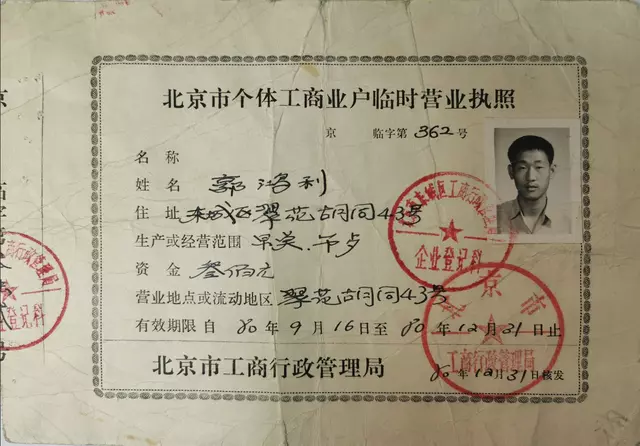 北京市个体工商业户临时营业执照
京 临字第362号
名称
姓名 郭鸿利
住址 东城区翠花胡同43号
生产或经营范围 早美、干
资金 叁佰元
营业地点或流动地区 翠花胡同43号
有效期限自80年9月16日至80年12月31日止
北京市工商行政管理局 80年12月31日核发
工商行政管理局
企业登记科
北京市
工商行政管理局